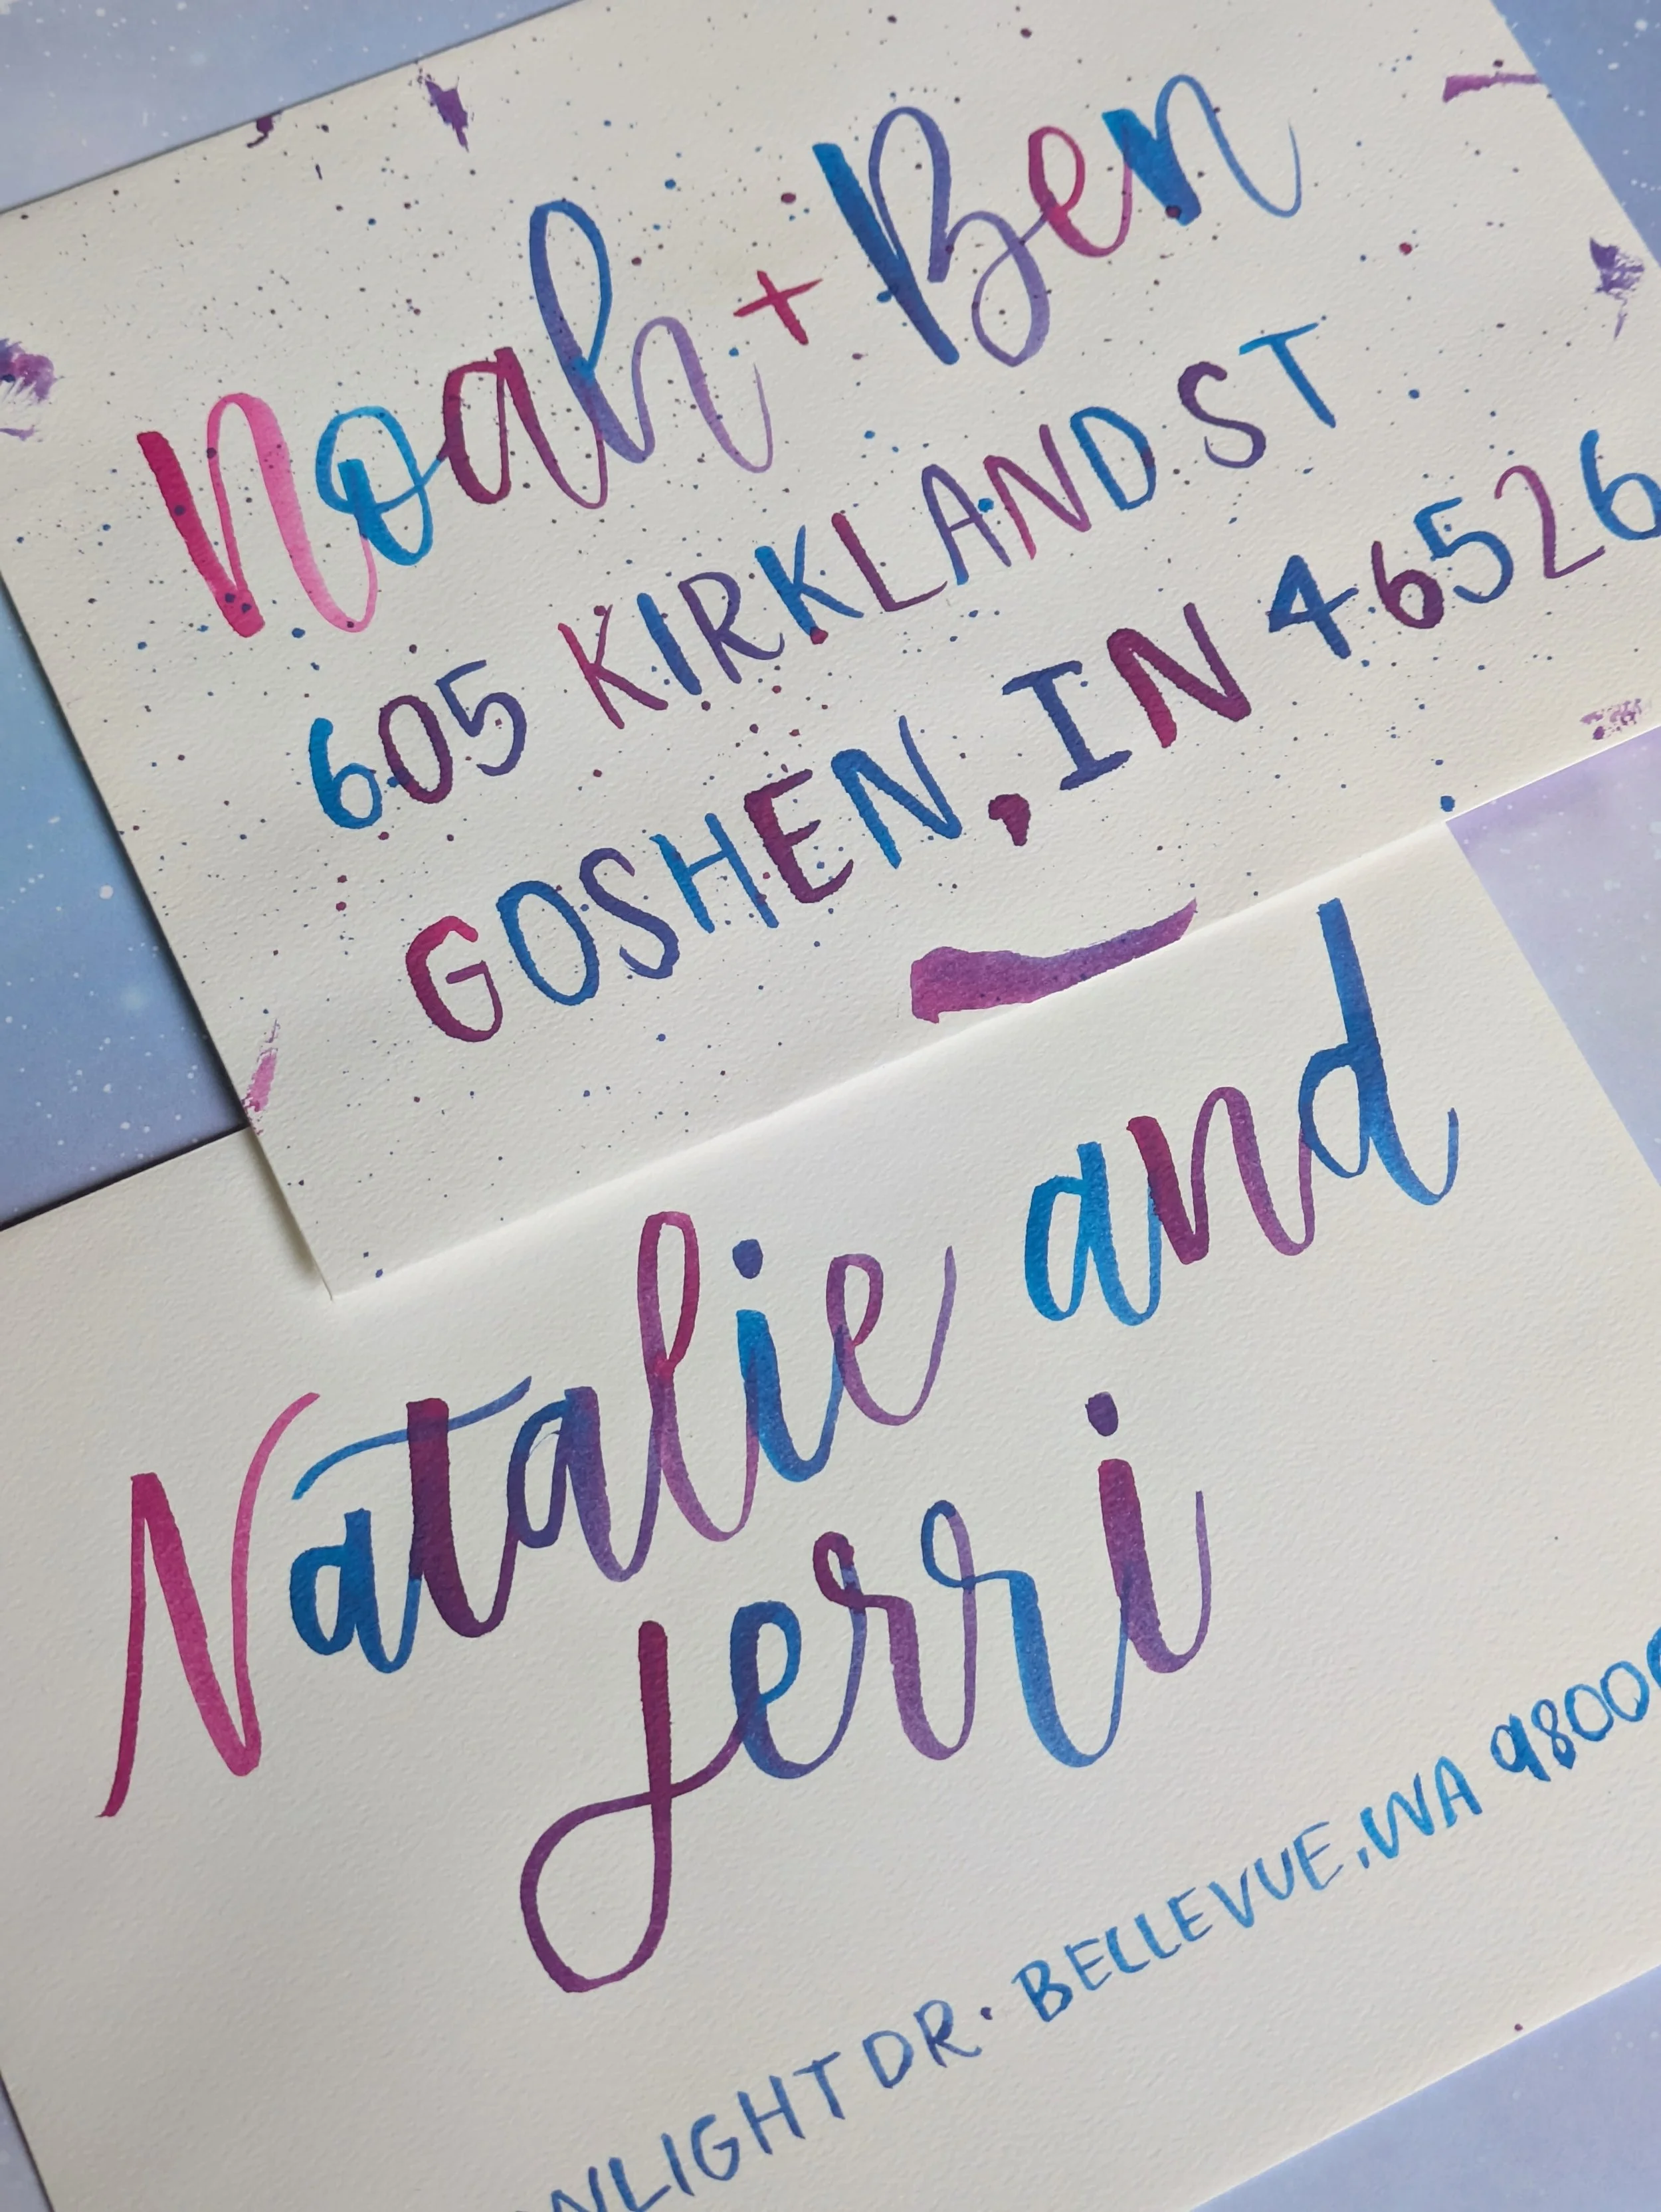 Noah + Ben
605 KIRKLAND ST
GOSHEN, IN 46526
Natalie and
Jerri
DR. BELLEVUE, WA